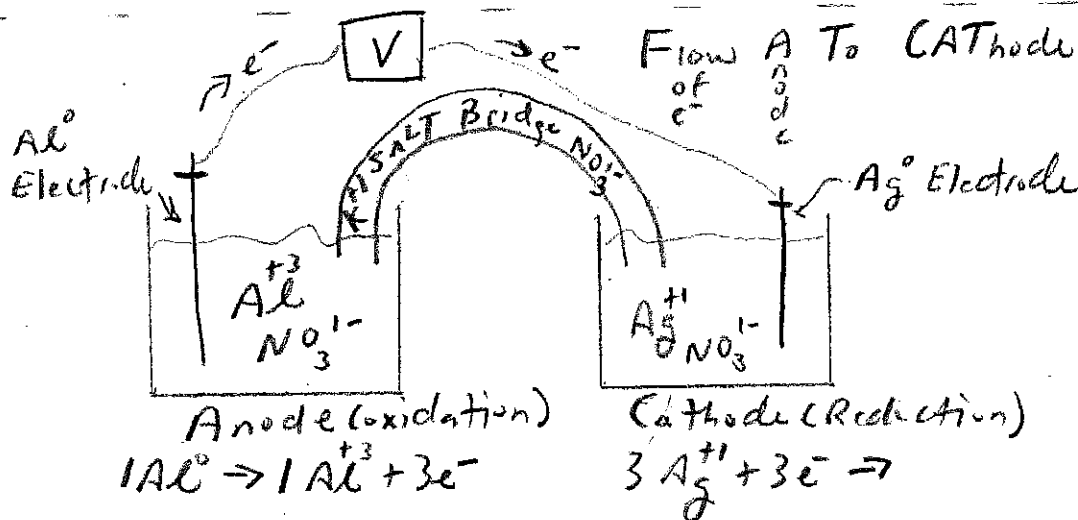 e⁻ V e⁻ Flow of e⁻ Anode To CAThode
K⁺¹ SALT Bridge NO₃¹⁻
Al⁰ Electrode
Ag⁰ Electrode
Al⁺³
NO₃¹⁻
Ag⁺¹
NO₃¹⁻
Anode (oxidation)
1Al⁰ → 1Al⁺³ + 3e⁻
Cathode (Reduction)
3Ag⁺¹ + 3e⁻ →